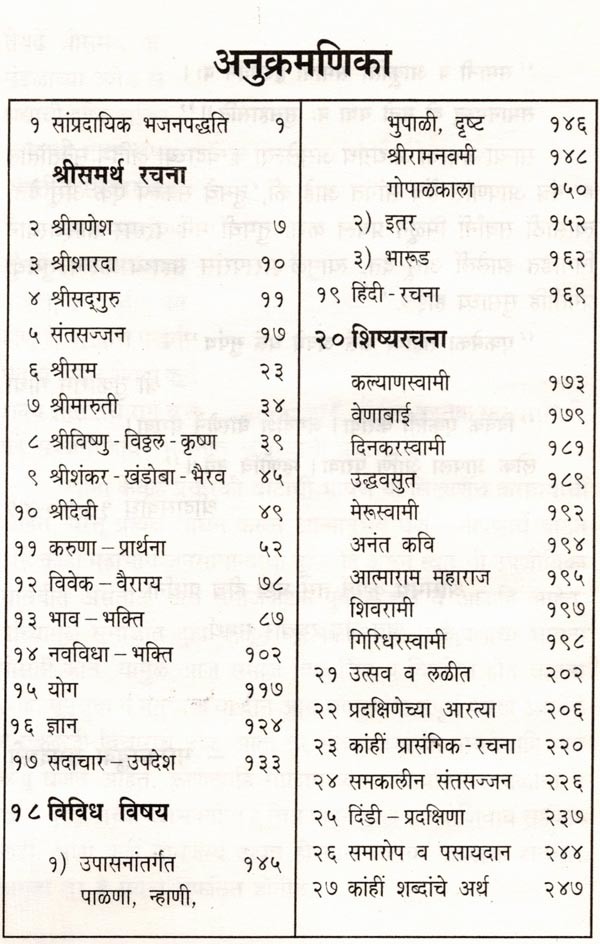 अनुक्रमणिका
१ सांप्रदायिक भजनपद्धति १
श्रीसमर्थ रचना
२ श्रीगणेश ७
३ श्रीशारदा १०
४ श्रीसद्‌गुरु ११
५ संतसज्जन १७
६ श्रीराम २३
७ श्रीमारुती ३४
८ श्रीविष्णु - विठ्ठल - कृष्ण ३९
९ श्रीशंकर - खंडोबा - भैरव ४५
१० श्रीदेवी ४९
११ करुणा – प्रार्थना ५२
१२ विवेक – वैराग्य ७८
१३ भाव – भक्ति ८७
१४ नवविधा – भक्ति १०२
१५ योग ११७
१६ ज्ञान १२४
१७ सदाचार – उपदेश १३३
१८ विविध विषय
१) उपासनांतर्गत १४५
पाळणा, न्हाणी,
भुपाळी, दृष्ट १४६
श्रीरामनवमी १४८
गोपाळकाला १५०
२) इतर १५२
३) भारूड १६२
१९ हिंदी - रचना १६९
२० शिष्यरचना
कल्याणस्वामी १७३
वेणाबाई १७९
दिनकरस्वामी १८१
उद्धवसुत १८९
मेरूस्वामी १९२
अनंत कवि १९४
आत्माराम महाराज १९५
शिवरामी १९७
गिरिधरस्वामी १९८
२१ उत्सव व लळीत २०२
२२ प्रदक्षिणेच्या आरत्या २०६
२३ कांहीं प्रासंगिक - रचना २२०
२४ समकालीन संतसज्जन २२६
२५ दिंडी – प्रदक्षिणा २३७
२६ समारोप व पसायदान २४४
२७ कांहीं शब्दांचे अर्थ २४७